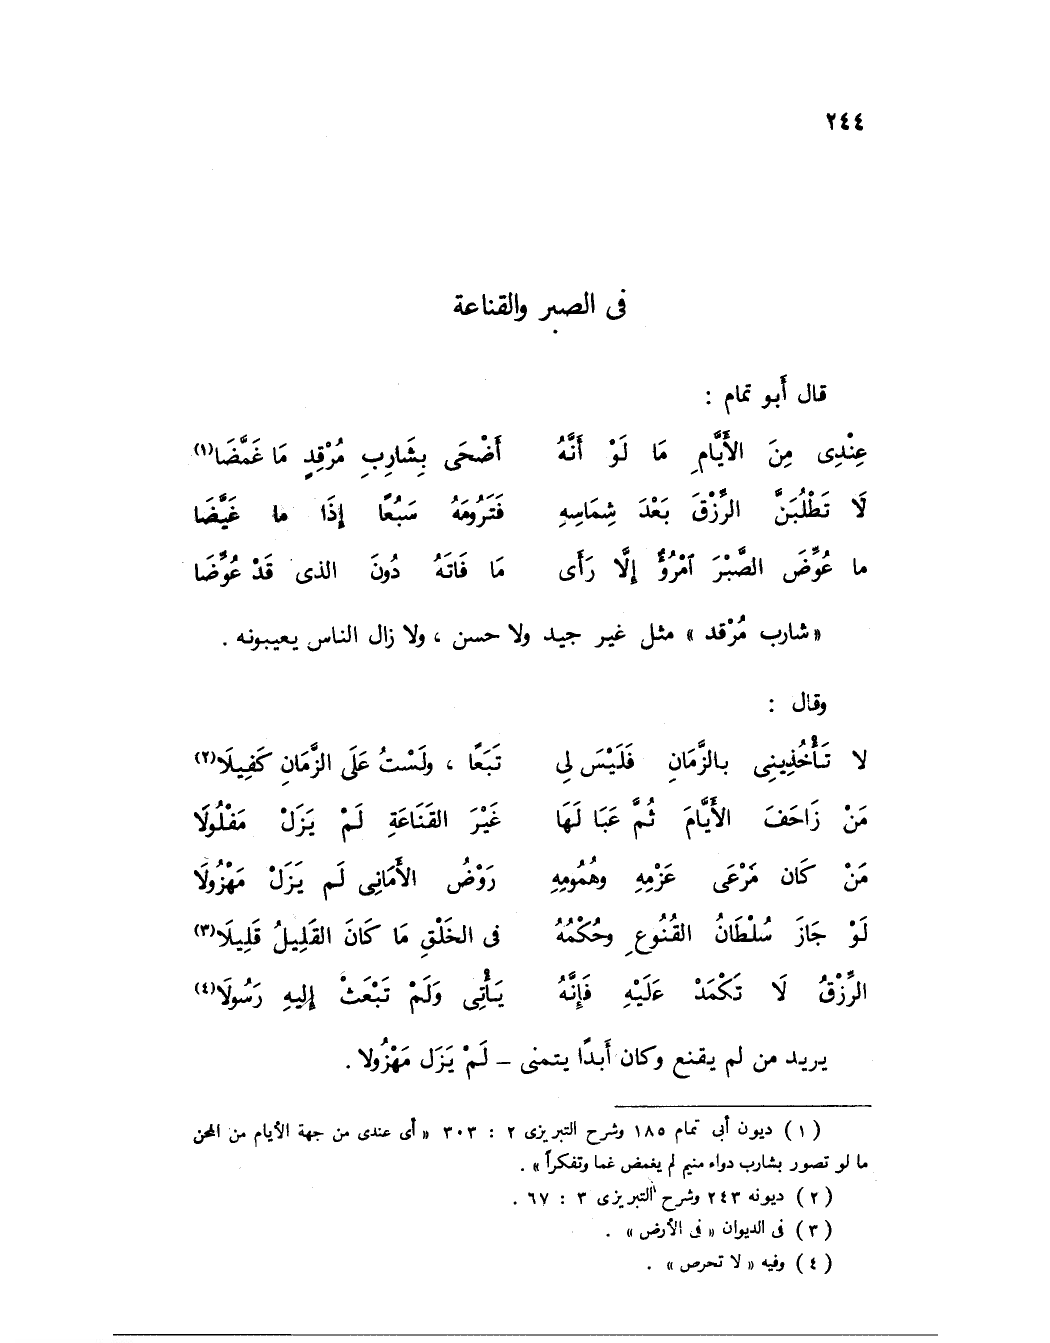 ٢٤٤
فى الصبر والقناعة
قال أَبو تمام :
عِنْدِى مِنَ الأَيَّامِ مَا لَوْ أَنَّهُ أَضْحَى بِشَارِبِ مُرْقِدٍ مَا غَمَّضَا(١)
لَا تَطْلُبَنَّ الرِّزْقَ بَعْدَ شِمَاسِهِ فَتَرُومَهُ سَبُعًا إِذَا ما غَيَّضَا
ما عُوِّضَ الصَّبْرَ ٱمْرُؤٌ إِلَّا رَأَى مَا فَاتَهُ دُونَ الذى قَدْ عُوِّضَا
« شارب مُرْقد » مثل غير جيد ولا حسن ، ولا زال الناس يعيبونه .
وقال :
لا تَأْخُذِينِى بالزَّمَانِ فَلَيْسَ لِى تَبَعًا ، ولَسْتُ عَلَى الزَّمَانِ كَفِيلَا(٢)
مَنْ زَاحَفَ الأَيَّامَ ثُمَّ عَبَا لَهَا غَيْرَ القَنَاعَةِ لَمْ يَزَلْ مَفْلُولَا
مَنْ كَان مَرْعَى عَزْمِهِ وهُمُومِهِ رَوْضُ الأَمَانِى لَم يَزَلْ مَهْزُولَا
لَوْ جَازَ سُلْطَانُ القُنُوعِ وحُكْمُهُ فى الخَلْقِ مَا كَانَ القَلِيلُ قَلِيلَا(٣)
الرِّزْقُ لَا تَكْمَدْ عَلَيْهِ فَإِنَّهُ يَأْتِى وَلَمْ تَبْعَثْ إِليهِ رَسُولَا(٤)
يريد من لم يقنع وكان أَبدًا يتمنى – لَمْ يَزَل مَهْزُولا .
(١) ديون أبى تمام ١٨٥ وشرح التبريزى ٢ : ٣٠٣ « أى عندى من جهة الأيام من المحن
ما لو تصور بشارب دواء منيم لم يغمض غما وتفكراً » .
(٢) ديونه ٢٤٣ وشرح التبريزى ٣ : ٦٧ .
(٣) فى الديوان « فى الأرض » .
(٤) وفيه « لا تحرص » .